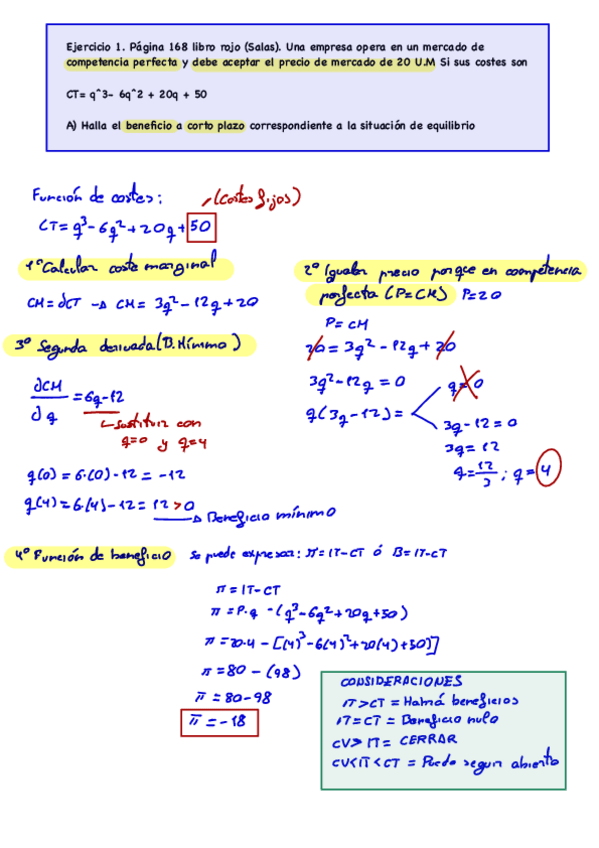 Ejercicio 1. Página 168 libro rojo (Salas). Una empresa opera en un mercado de
competencia perfecta y debe aceptar el precio de mercado de 20 U.M Si sus costes son
CT= q^3- 6q^2 + 20q + 50
A) Halla el beneficio a corto plazo correspondiente a la situación de equilibrio
Función de costes:
(costes fijos)
CT= q³-6q²+20q+50
1º Calcular coste marginal
CM = ∂CT → CM = 3q²-12q+20
2º Igualar precio porque en competencia
perfecta (P=CM) P=20
P= CM
20 = 3q²-12q+20
3q²-12q = 0
q(3q-12)=
q=0
3q-12=0
3q=12
q=12/3; q=4
3º Segunda derivada (B. Mínimo)
∂CM/∂q = 6q-12
sustituir con
q=0 y q=4
q(0)=6·(0)-12=-12
q(4)=6·(4)-12=12>0
Beneficio mínimo
4º Función de beneficio Se puede expresar: π=IT-CT ó B=IT-CT
π = IT-CT
π = P·q - (q³-6q²+20q+50)
π = 20·4 - [(4)³-6(4)²+20(4)+50)]
π = 80 - (98)
π = 80-98
π = -18
CONSIDERACIONES
IT>CT = Habrá beneficios
IT=CT = Beneficio nulo
CV>IT= CERRAR
CV<IT<CT = Puede seguir abierta